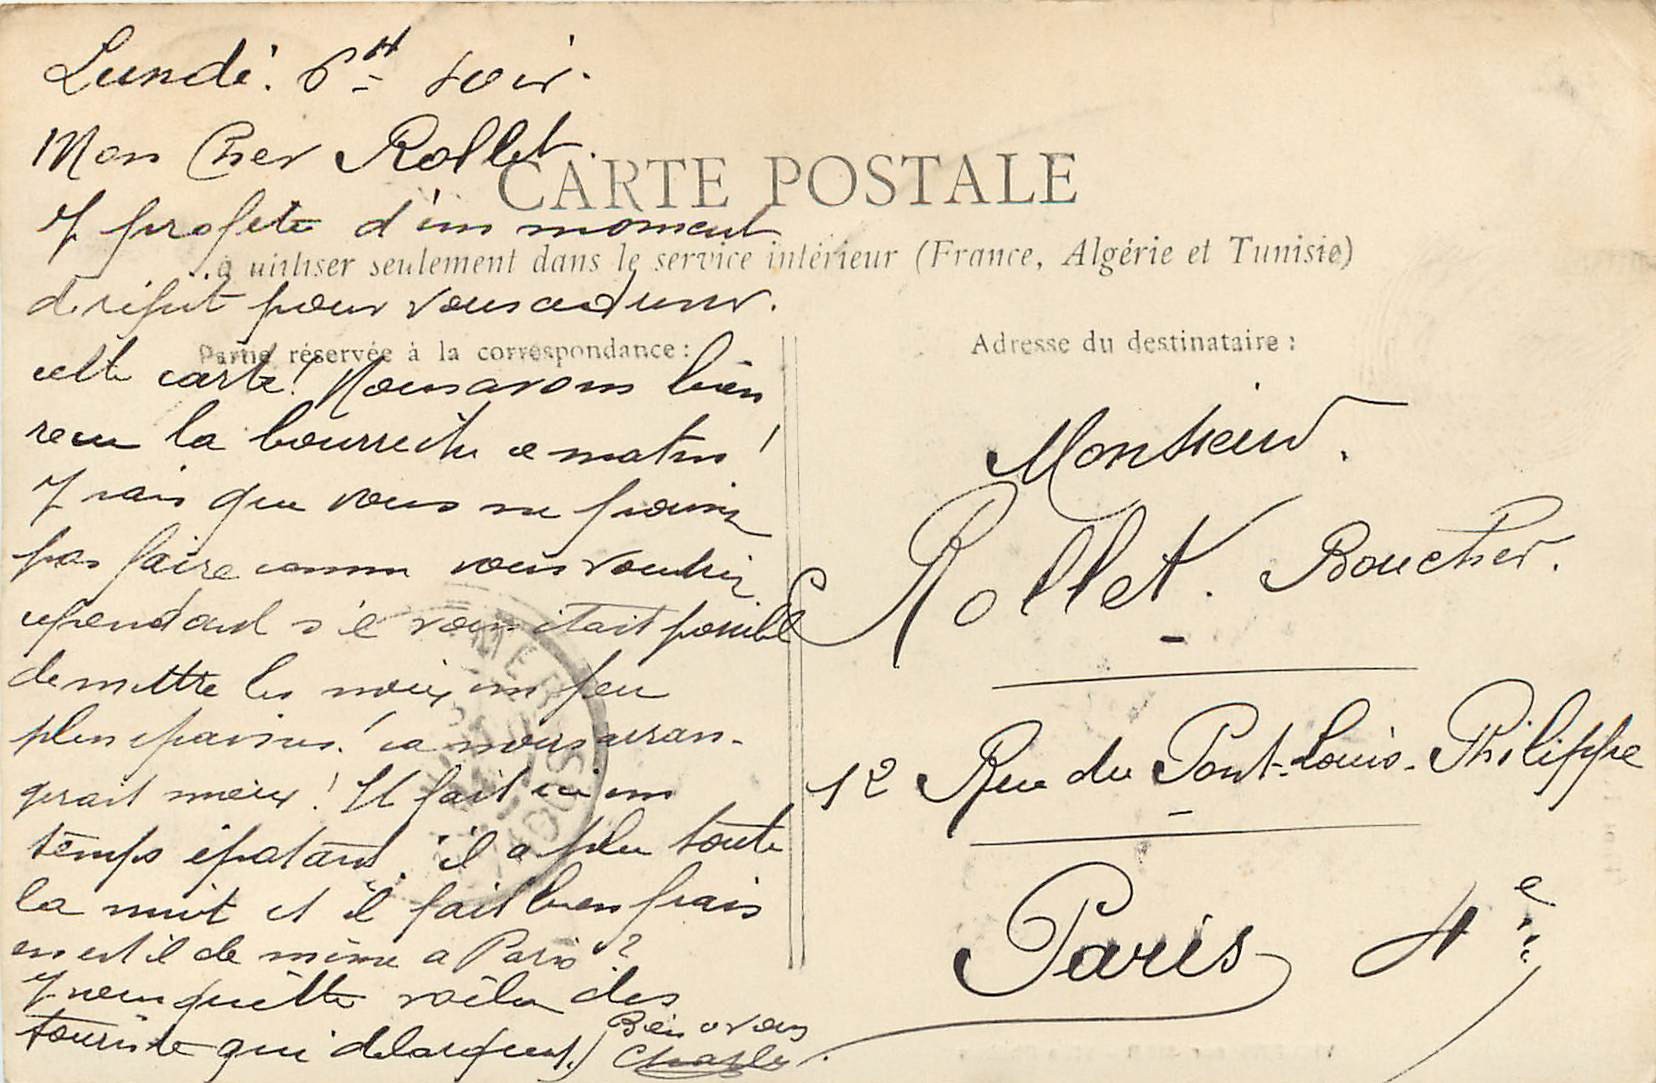 Lundi. 6H soir.
Mon Cher Rollet.
CARTE POSTALE
J profite d'un moment
à utiliser seulement dans le service intérieur (France, Algérie et Tunisie)
de répit pour vous
Partie réservée à la correspondance:
cette carte! Nous avons bien
recu la bourriche ce matin!
J sais que vous ne pouvez
pas faire comme vous voudriez
cependant s'il vous était possible
de mettre les noix un peu
plus épaisses! ca nous arran-
gerait mieux! Il fait ici un
temps épatant. il a plu toute
la nuit et il fait bien frais
en est il de même a Paris?
J vous quitte voila des
touriste qui délarquent.
Bien a vous
Charles
Adresse du destinataire:
Monsieur.
Rollet. Boucher.
12 Rue du Pont-Louis-Philippe
Paris 4e